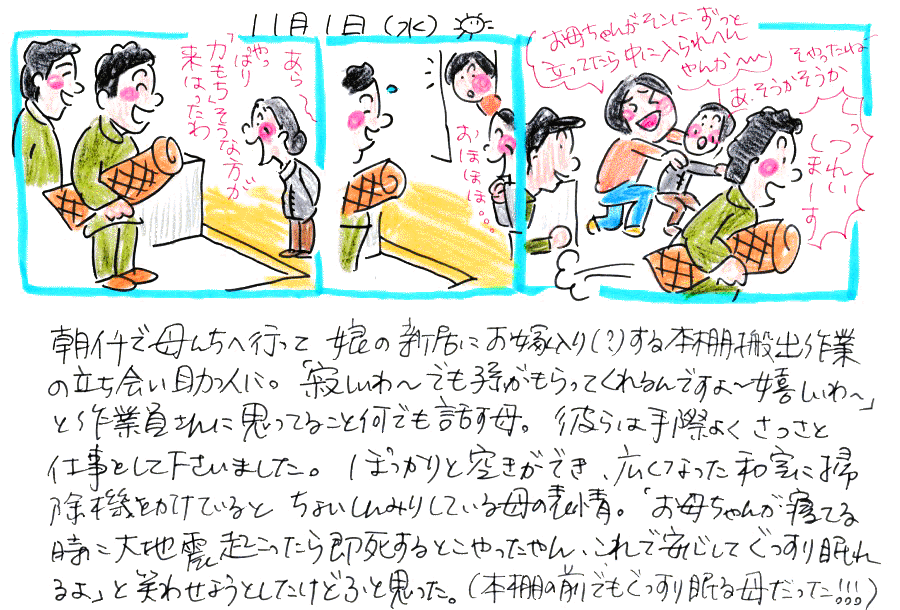 11月1日(水)
あら〜
やっぱり
「力もち」そうな方が
来はったわ
おほほほ…
お母ちゃんがそこに ずっと
立ってたら中に入られへん
やんか〜
そやったわ
あ、そうかそうか
とっ
つれい
しまーす
朝イチで母んちへ行って 娘の新居にお嫁入り(?)する本棚搬出作業
の立ち会い助っ人に。「寂しいわ〜でも孫がもらってくれるんですよ〜嬉しいわ〜」
と作業員さんに思ってること何でも話す母。 彼らは手際よくさっさと
仕事をして下さいました。 ぽっかりと空きができ、広くなった和室に掃
除機をかけていると ちょいしんみりしている母の表情。「お母ちゃんが寝てる
時に大地震起こったら即死するとこやったやん、これで安心してぐっすり眠れ
るよ」と笑わせようとしたけどふと思った。(本棚の前でもぐっすり眠る母だった!!!)